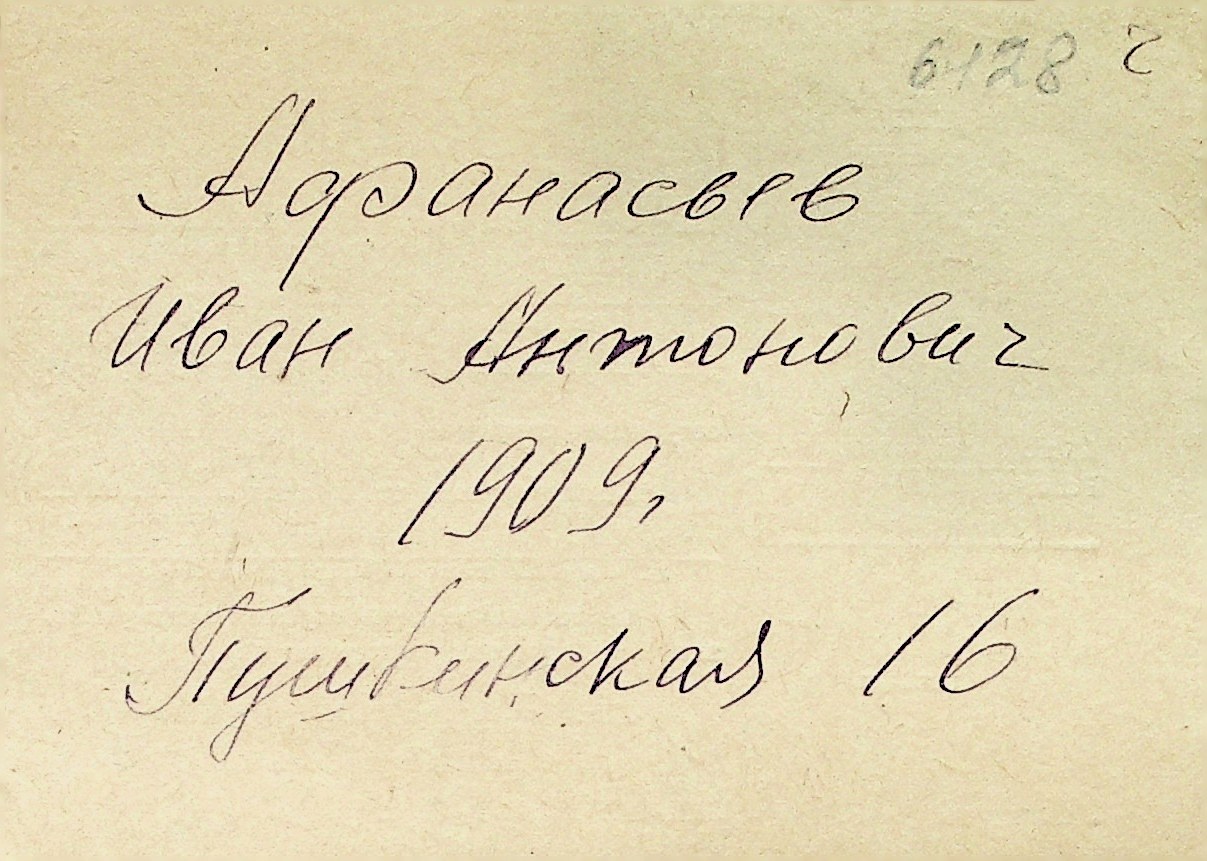 6128 г
Афанасьев
Иван Антонович
1909г
Пушкинская 16